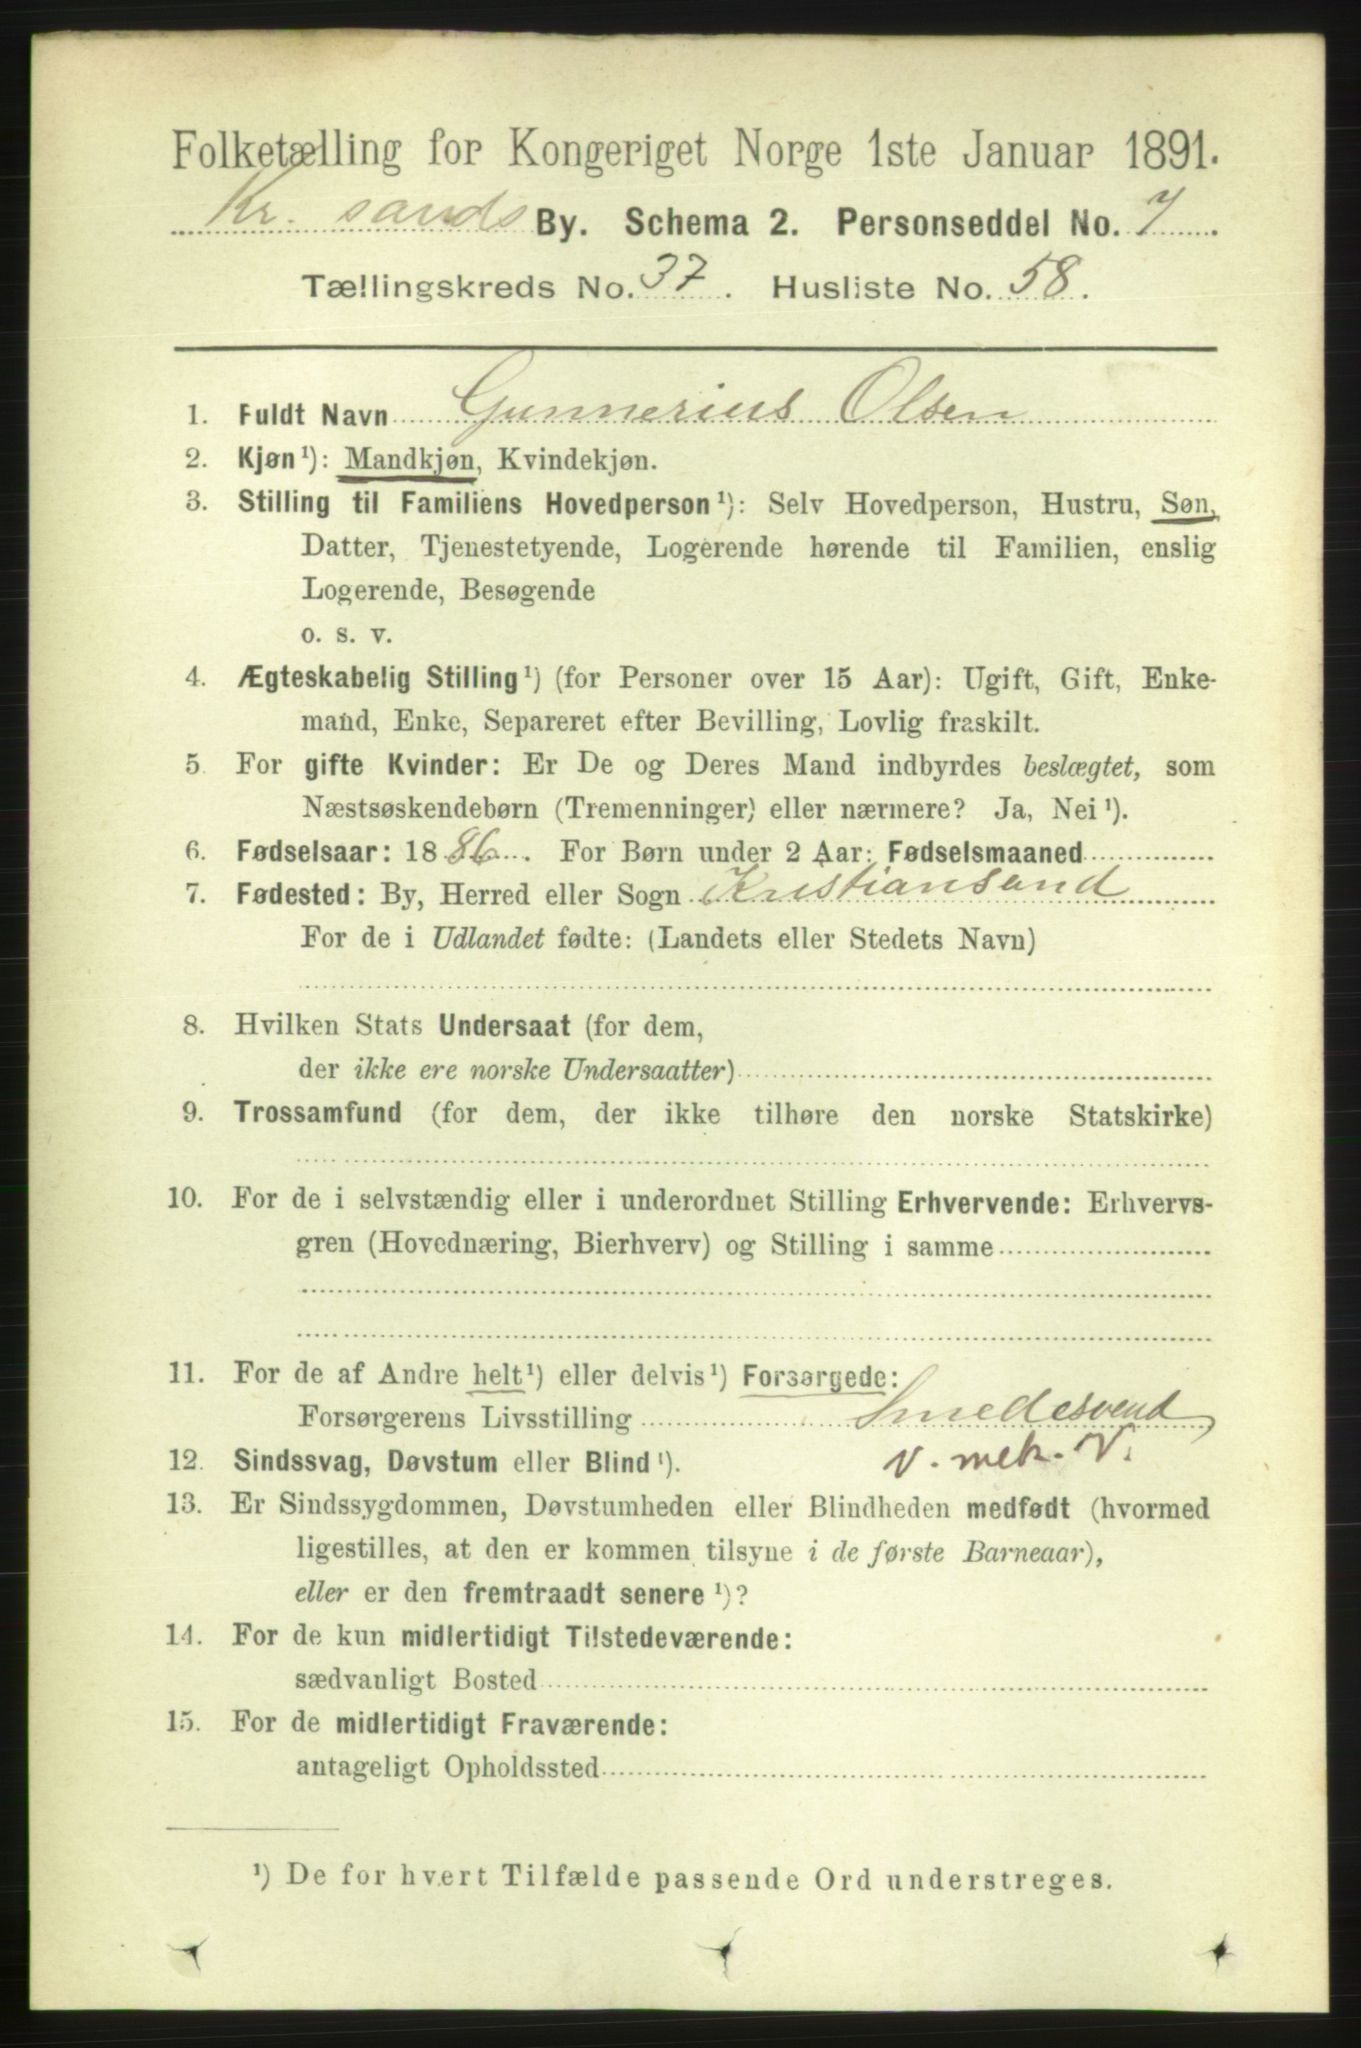 Folketælling for Kongeriget Norge 1ste Januar 1891.
Kr. sands By. Schema 2. Personseddel No. 7
Tællingskreds No. 37. Husliste No. 58.
1. Fuldt Navn Gunnerius Olsen
2. Kjøn ¹): Mandkjøn, Kvindekjøn.
3. Stilling til Familiens Hovedperson ¹): Selv Hovedperson, Hustru, Søn,
Datter, Tjenestetyende, Logerende hørende til Familien, enslig
Logerende, Besøgende
o. s. v.
4. Ægteskabelig Stilling ¹) (for Personer over 15 Aar): Ugift, Gift, Enke-
mand, Enke, Separeret efter Bevilling, Lovlig fraskilt.
5. For gifte Kvinder: Er De og Deres Mand indbyrdes beslægtet, som
Næstsøskendebørn (Tremenninger) eller nærmere? Ja, Nei ¹).
6. Fødselsaar: 1886. For Børn under 2 Aar: Fødselsmaaned
7. Fødested: By, Herred eller Sogn Kristiansand
For de i Udlandet fødte: (Landets eller Stedets Navn)
8. Hvilken Stats Undersaat (for dem,
der ikke ere norske Undersaatter)
9. Trossamfund (for dem, der ikke tilhøre den norske Statskirke)
10. For de i selvstændig eller i underordnet Stilling Erhvervende: Erhvervs-
gren (Hovednæring, Bierhverv) og Stilling i samme
11. For de af Andre helt ¹) eller delvis ¹) Forsørgede:
Forsørgerens Livsstilling Smedesvend
v. mek. V.
12. Sindssvag, Døvstum eller Blind ¹).
13. Er Sindssygdommen, Døvstumheden eller Blindheden medfødt (hvormed
ligestilles, at den er kommen tilsyne i de første Barneaar),
eller er den fremtraadt senere ¹)?
14. For de kun midlertidigt Tilstedeværende:
sædvanligt Bosted
15. For de midlertidigt Fraværende:
antageligt Opholdssted
¹) De for hvert Tilfælde passende Ord understreges.